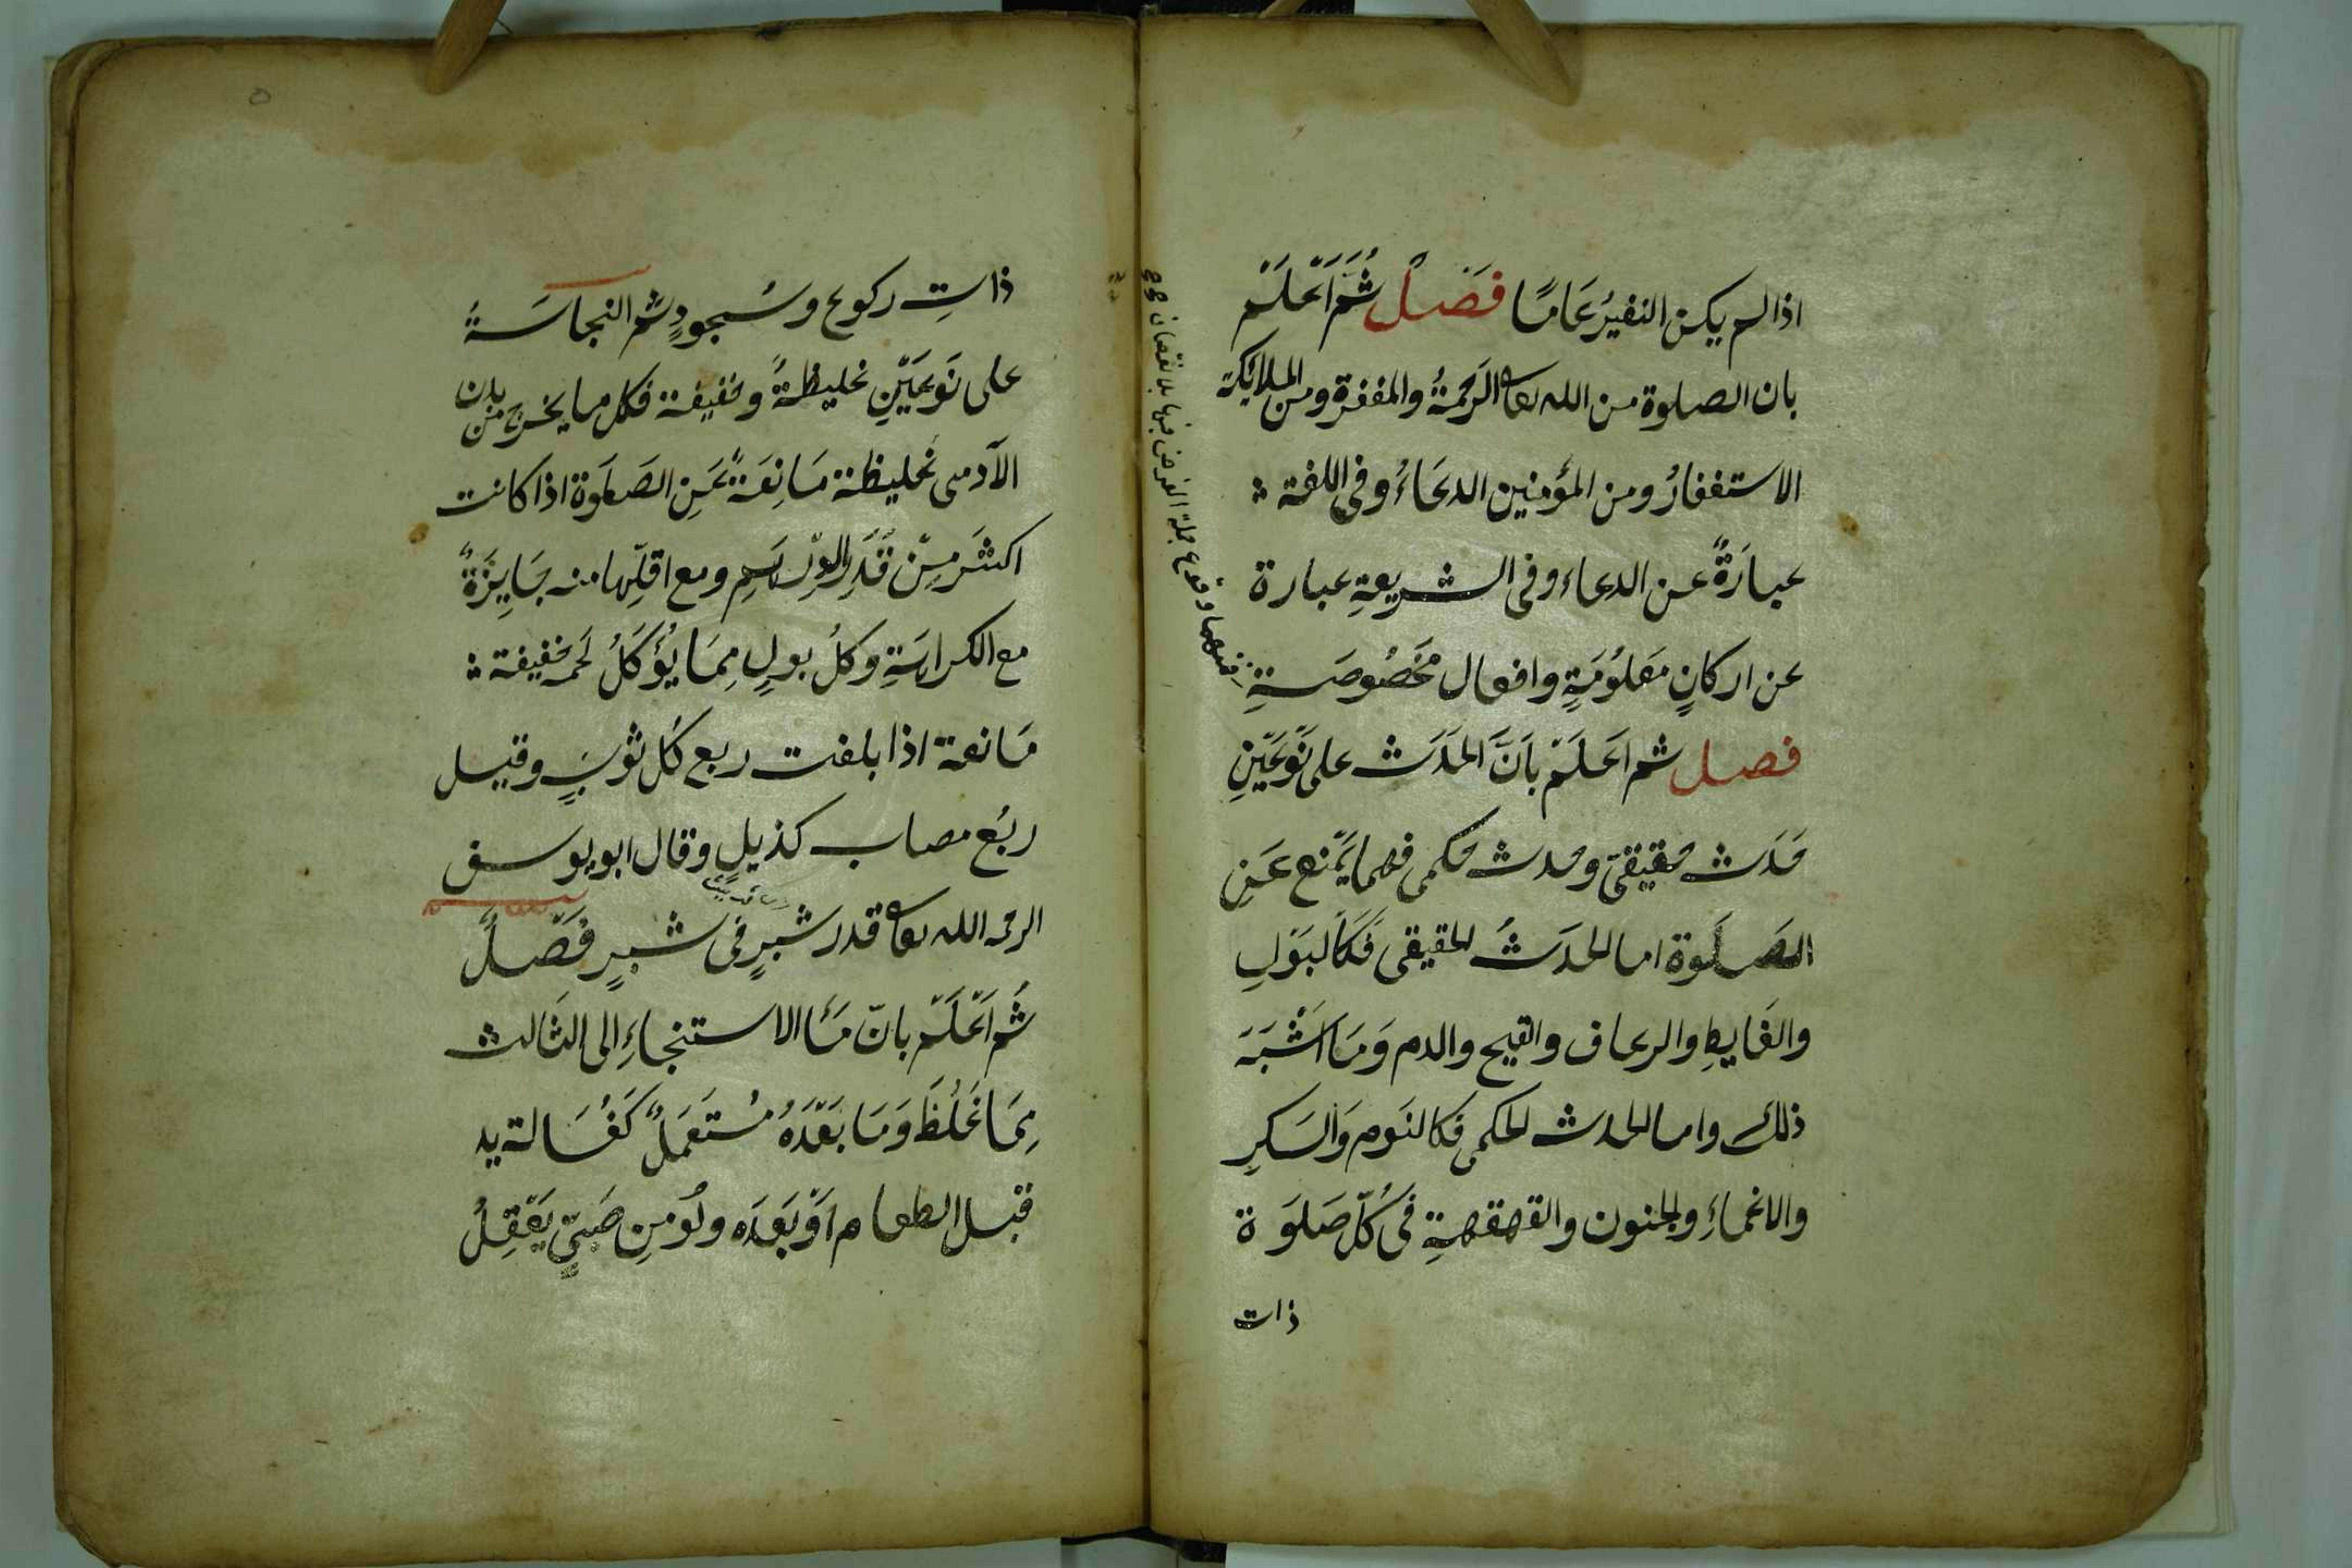 اذا لم يكن النفيرُ عَامًا فَصْلٌ ثُمَّ اَعْلَمْ
بان الصلوة من الله تعا الرَحمةُ والمغفرة ومن الملائكة
الاستغفارُ ومن المؤمنين الدعَاءُ وفى اللغة
عبارَةٌ عن الدعاء وفى الشريعةِ عبارة
عن اركانٍ مَعلُومَةٍ وافعال مَخصُوصَةٍ
فصل ثم اعَلَمْ بانَّ الحَدَث على نَوعَيْنِ
حَدَث حقيقىّ وحدث حكمى فهما يَمْنع عَنِ
الصَلَوة اما الحدَثُ الحقيقى فَكَالبَوْلِ
والغَايطِ والرعاف والقيح والدم وَمَا اَشْبَهَ
ذلك واما الحدث الحكمى فكالنَوم وَالسَكرِ
والاغماءَِ والجنون والقهقهةِ فى كُلّ صَلوَة
ذات
منهما وقوع جملة الفرض فيها بلا نقصان
ذاتِ ركوع وسُجودٍ ثم النجاسَةُ
على نَوعَيْنِ غليظةٌ وخفيفة فكل ما يخرج من بدن
الآدمى غليظة مَانِعَةٌ عَنِ الصَلَوة اذا كانت
اكثَر مِنْ قَدْرِ الدِرْهَمِ ومع اقلِّها منه جَايِزَةٌ
مع الكراهَةِ وكلُ بولٍ مِمَا يُؤْكَلُ لَحمه خفيفة
مَانعة اذا بلغت ربع كُل ثوبٍ وقيل
ربُع مصاب كذيلٍ وقال ابو يوسف
الرحمه الله تعا قدر شبرٍ فى شبرٍ فَصْلٌ
ثُم اَعْلَمْ بانّ مَاءَ الاستنجاءِ الى الثَالث
مِمَا غَلُظَ وَمَا بَعْدَهُ مُستَعمَلٌ كَغُسَالة يد
قبْل الطعام اَوْ بَعدَه ولَوُ مِن صَبىٍّ يَعْقِلُ